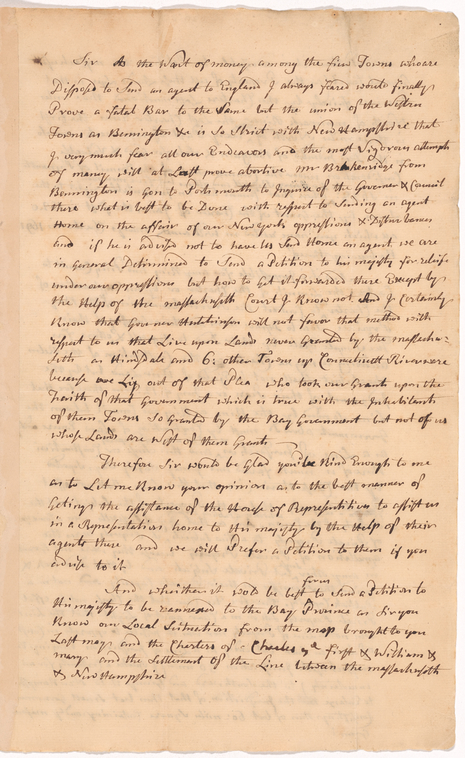 Sir As the Want of money among the few Towns who are
Disposed to Send an agent to England I always feared would finally
Prove a fatal Bar to the Same but the union of the Western
Towns as Bennington &c is So Strict with New Hampshire that
I very much fear all our Endeavors and the most Vigorous attempts
of many will at Last prove abortive mr Brakenridge from
Bennington is gon to Portsmouth to Inquire of the Governer & Council
there what is best to be Done with respect to Sending an agent
Home on the affair of our New york oppressions & Disturbances
and if he is advised not to have us Send Home an agent we are
in General Ditirmined to Send a Petition to his majesty for releif
under our oppressions but how to Get it forwarded there Except by
the Help of the massachusetts Court I Know not And I Certainly
Know that Governer Hutchinson will not favor that method with
respect to us that Live upon Lands never Granted by the massachu-
setts as Hinsdale and 6: other Towns up Connecticutt River were
because we Lip out of that Plea who took our Grants upon the
faith of that Government which is true with the Inhabitants
of them Towns So Granted by the Bay Government but not of us
whose Lands are West of them Grants
Therefore Sir would be Glad you'l be Kind Enough to me
as to Let me Know your opinion as to the best manner of
Geting the assistance of the House of Representitives to assist us
in a Representation home to His majesty by the Help of their
agents there and we will Prefer a Petition to them if you
advise to it
And whither it wold be best for us to Send a Petition to
His majesty to be reannexed to the Bay Province as Sir you
Know our Local Scituation from the map brought to you
Last may and the Charters of Charles ye first & William &
mary and the Settlement of the Line between the massachusetts
& New Hampshire